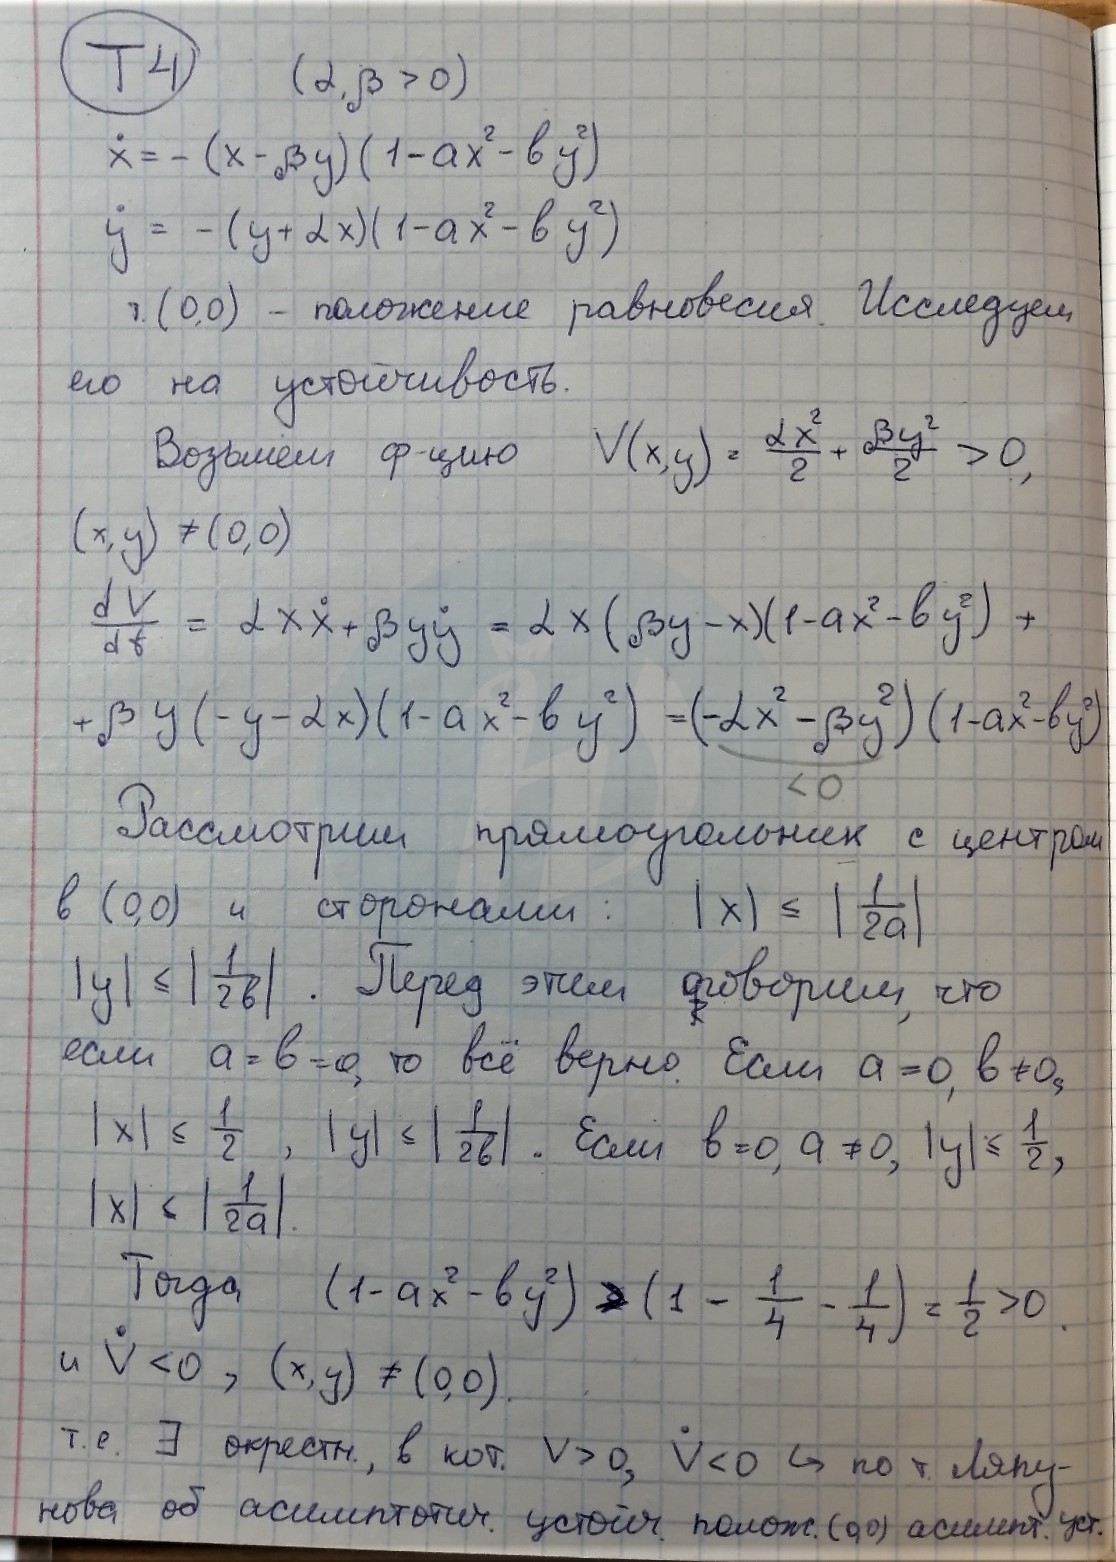 Т4 (α, β > 0)
ẋ = -(x-βy)(1-ax²-by²)
ẏ = -(y+αx)(1-ax²-by²)
т.(0,0) - положение равновесия. Исследуем
его на устойчивость.
Возьмем ф-цию V(x,y) = αx²/2 + βy²/2 > 0,
(x,y) ≠ (0,0)
dV/dt = αxẋ + βyẏ = αx(βy-x)(1-ax²-by²) +
+βy(-y-αx)(1-ax²-by²) = (-αx²-βy²)(1-ax²-by²)
<0
Рассмотрим прямоугольник с центром
в (0,0) и сторонами: |x| ≤ |1/2a|
|y| ≤ |1/2b|. Перед этим оговорим, что
если a=b=0, то всё верно. Если a=0, b≠0,
|x| ≤ 1/2, |y| ≤ |1/2b|. Если b=0, a≠0, |y| ≤ 1/2,
|x| ≤ |1/2a|.
Тогда (1-ax²-by²) > (1 - 1/4 - 1/4) = 1/2 > 0.
и V̇ < 0, (x,y) ≠ (0,0).
т.е. ∃ окрестн., в кот. V>0, V̇<0 ↪ по т. Ляпу-
нова об асимптотич. устойч. полож. (0,0) асимпт. уст.